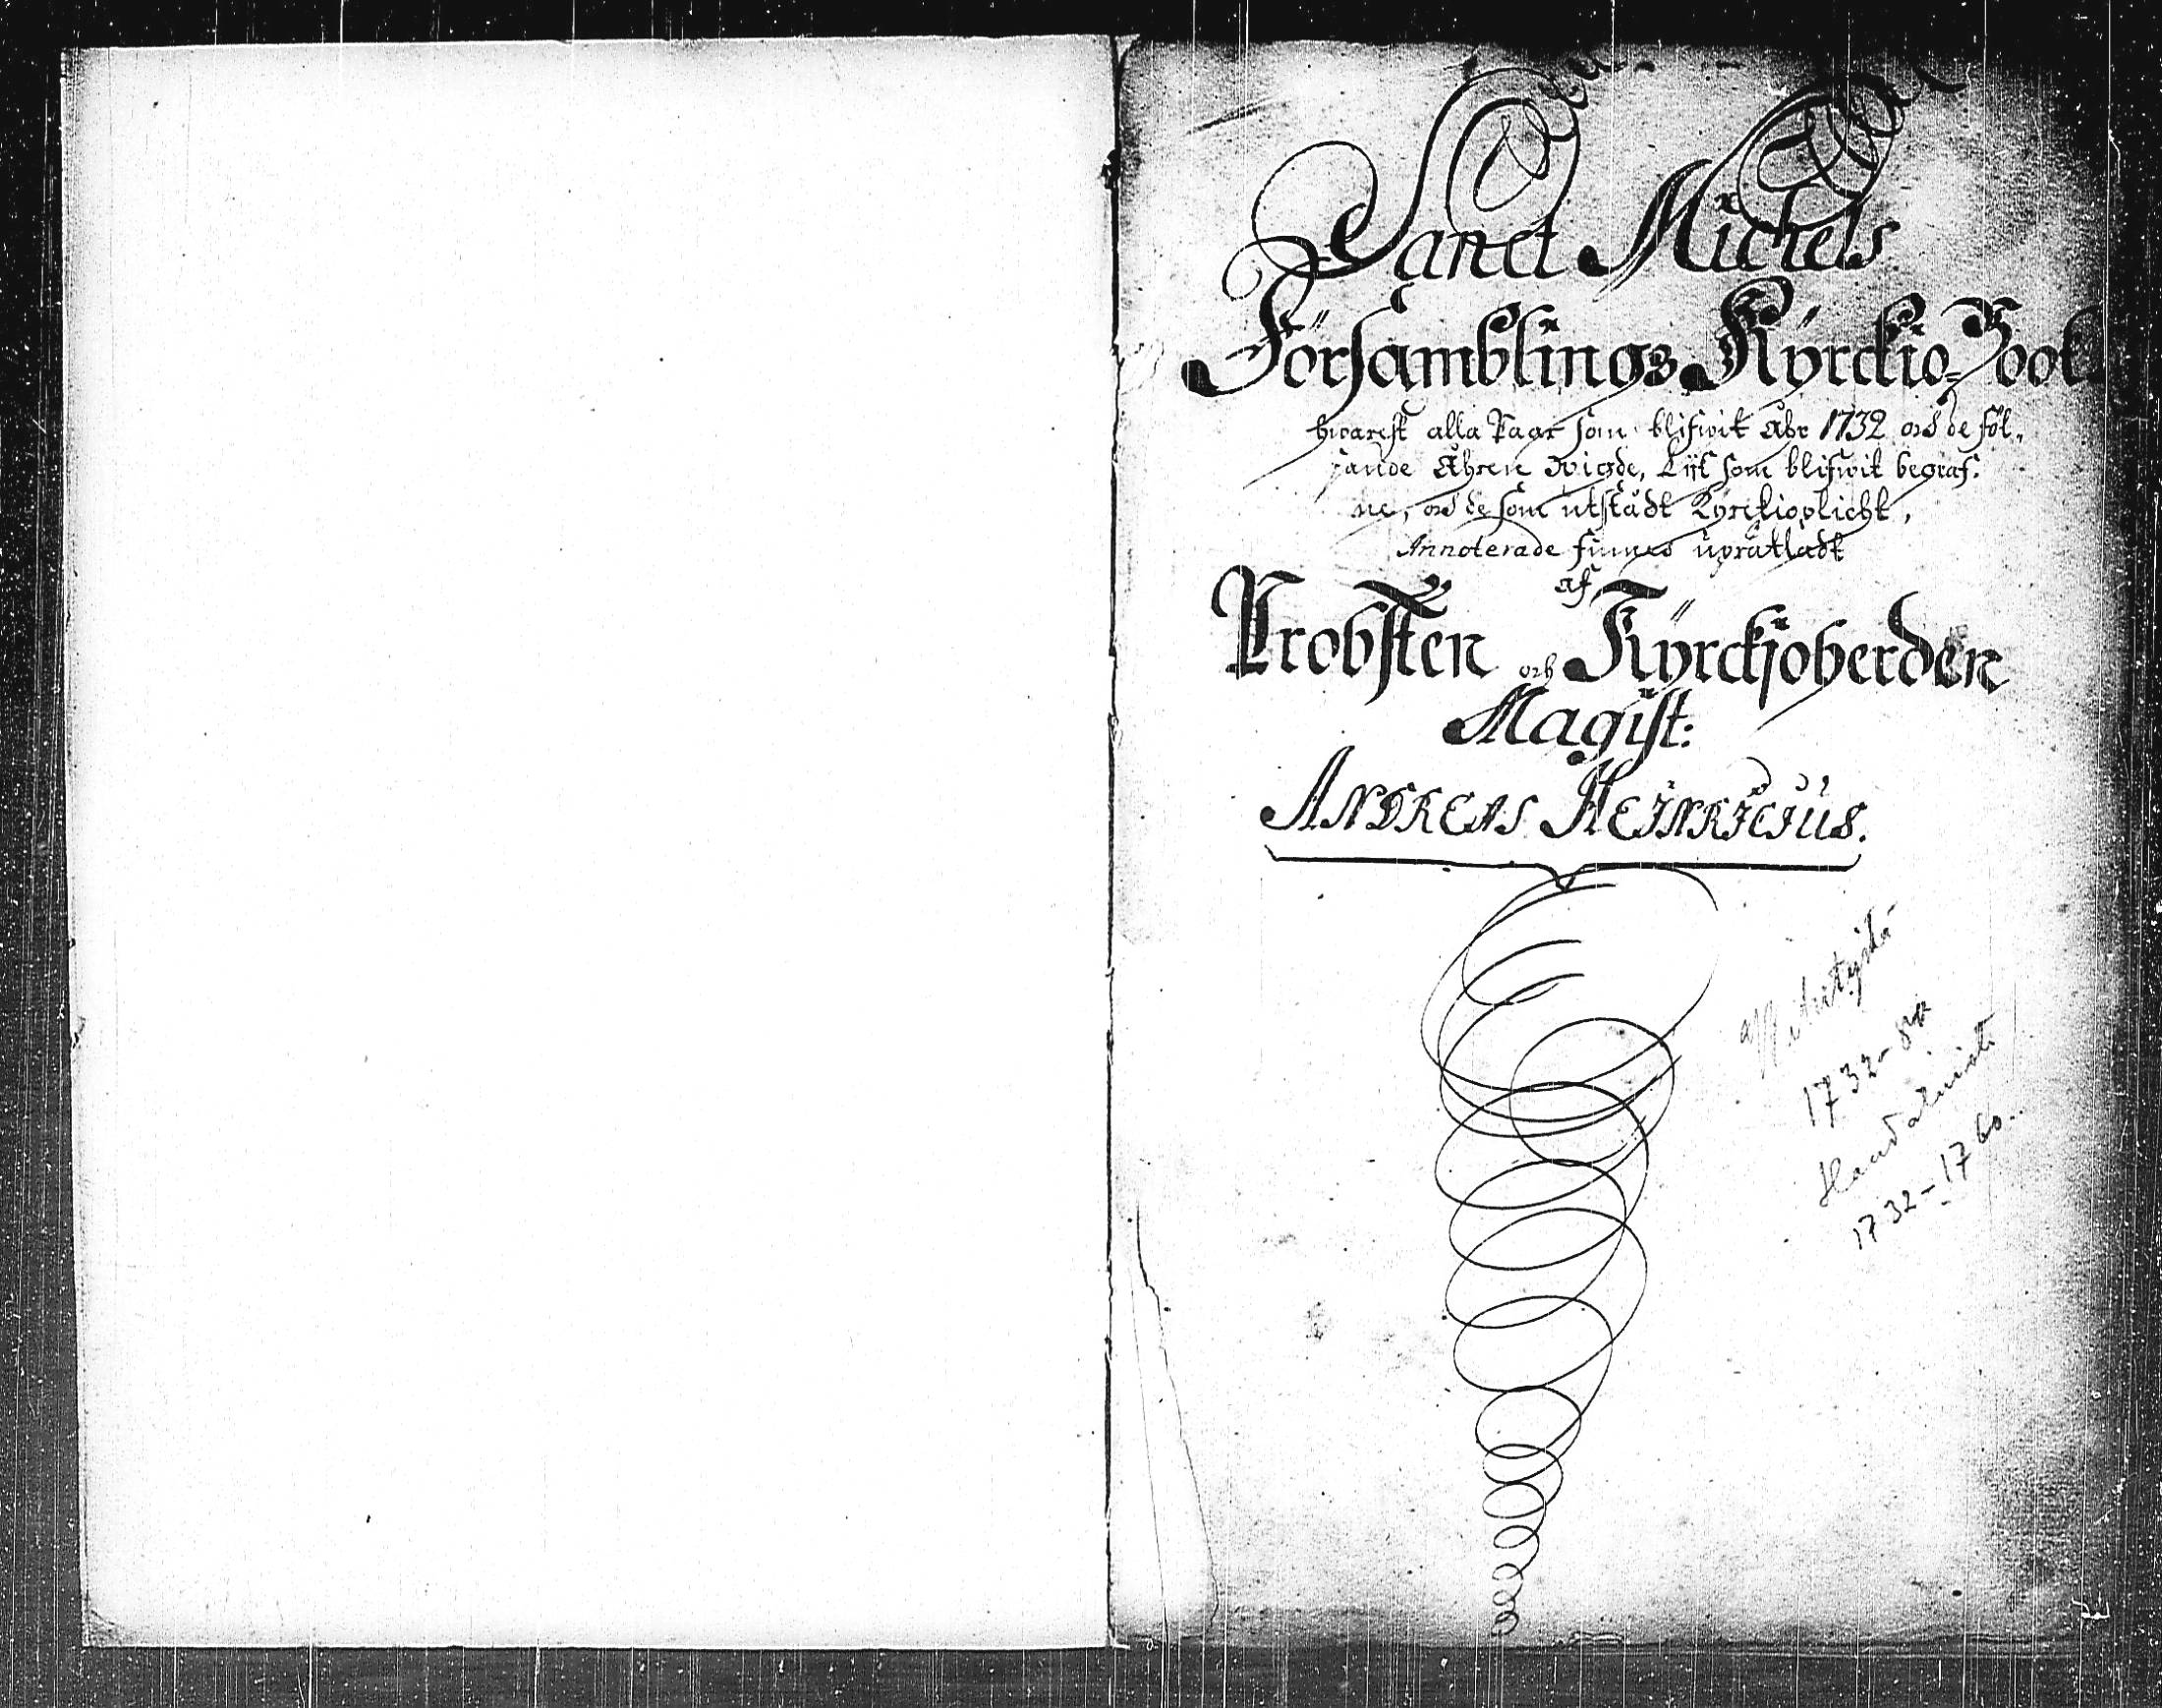 Sanct Michels
Församblings Kyrckio-Book
hwarest alla Paar som blifwit Åhr 1732 och de föl-
jande Åhren wigde, Lijk som blifwit begraf-
ne, och de som utstådt Kyrckioplicht,
Annoterade finnes uprättadt
af
Probsten och Kyrckjoherden
Magist:
ANDREAS HEINRICIUS.
Vihityitä
1732-
Haudatuita
1732-1760.